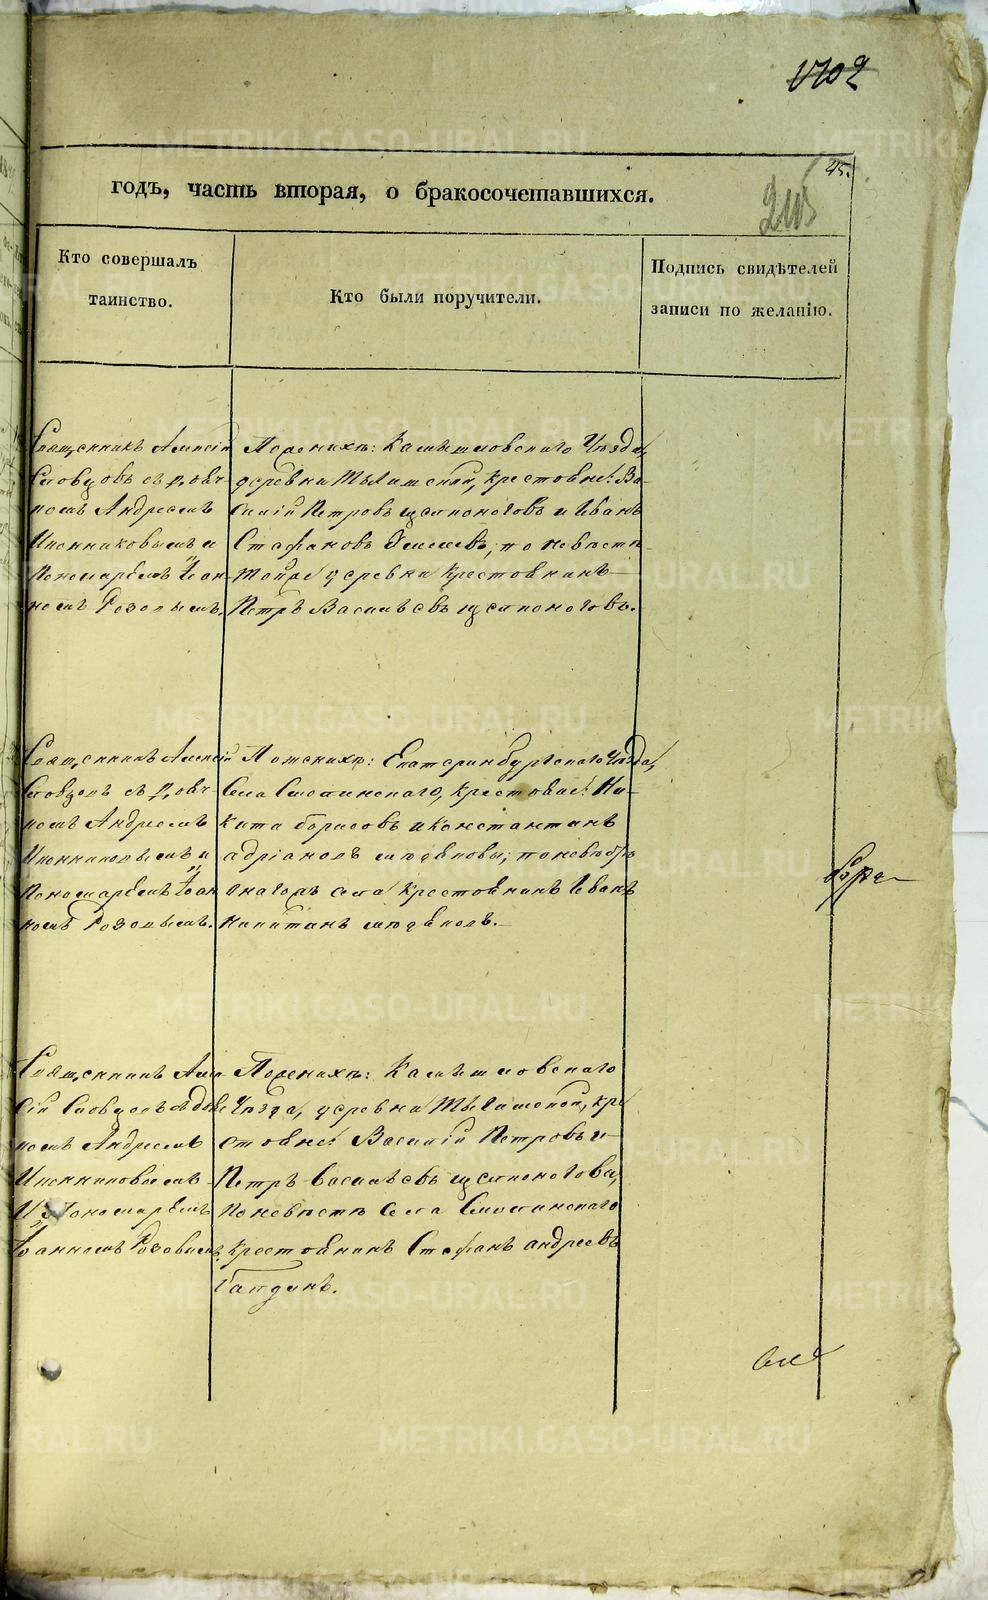 1702
45.
годъ, часть вторая, о бракосочетавшихся.
Кто совершалъ
таинство.
Кто были поручители.
Подпись свидѣтелей
записи по желанію.
Священникъ Алексій
Словцовъ съ діако-
номъ Андреемъ
Иконниковымъ и
Пономаремъ Іоан-
номъ Розовымъ.
По женихѣ: Камышловскаго Уѣзда,
деревни Тыгишской, крестьяне: Ва-
силій Петровъ Щелконоговъ и Иванъ
Стефановъ по невѣстѣ
той же деревни крестьянинъ
Петръ Васильевъ Щелконоговъ.
Священникъ Алексій
Словцовъ съ діако-
номъ Андреемъ
Иконниковымъ и
Пономаремъ Іоан
номъ Розовымъ.
По женихѣ: Екатеринбургскаго Уѣзда,
села Смолинскаго, крестьяне: Ни-
кита Борисовъ и Константинъ
Адріановъ по невѣстѣ
онагожъ села крестьянинъ Иванъ
Священникъ Алек
сій Словцовъ
номъ Андреемъ
Иконниковымъ
и Пономаремъ
Іоанномъ Розовымъ.
По женихѣ: Камышловскаго
Уѣзда, деревни Тыгишской, кре
стьяне: Василій Петровъ и
Петръ Васильевъ Щелконоговы,
по невѣстѣ села Смолинскаго
крестьянинъ Стефанъ Андреевъ